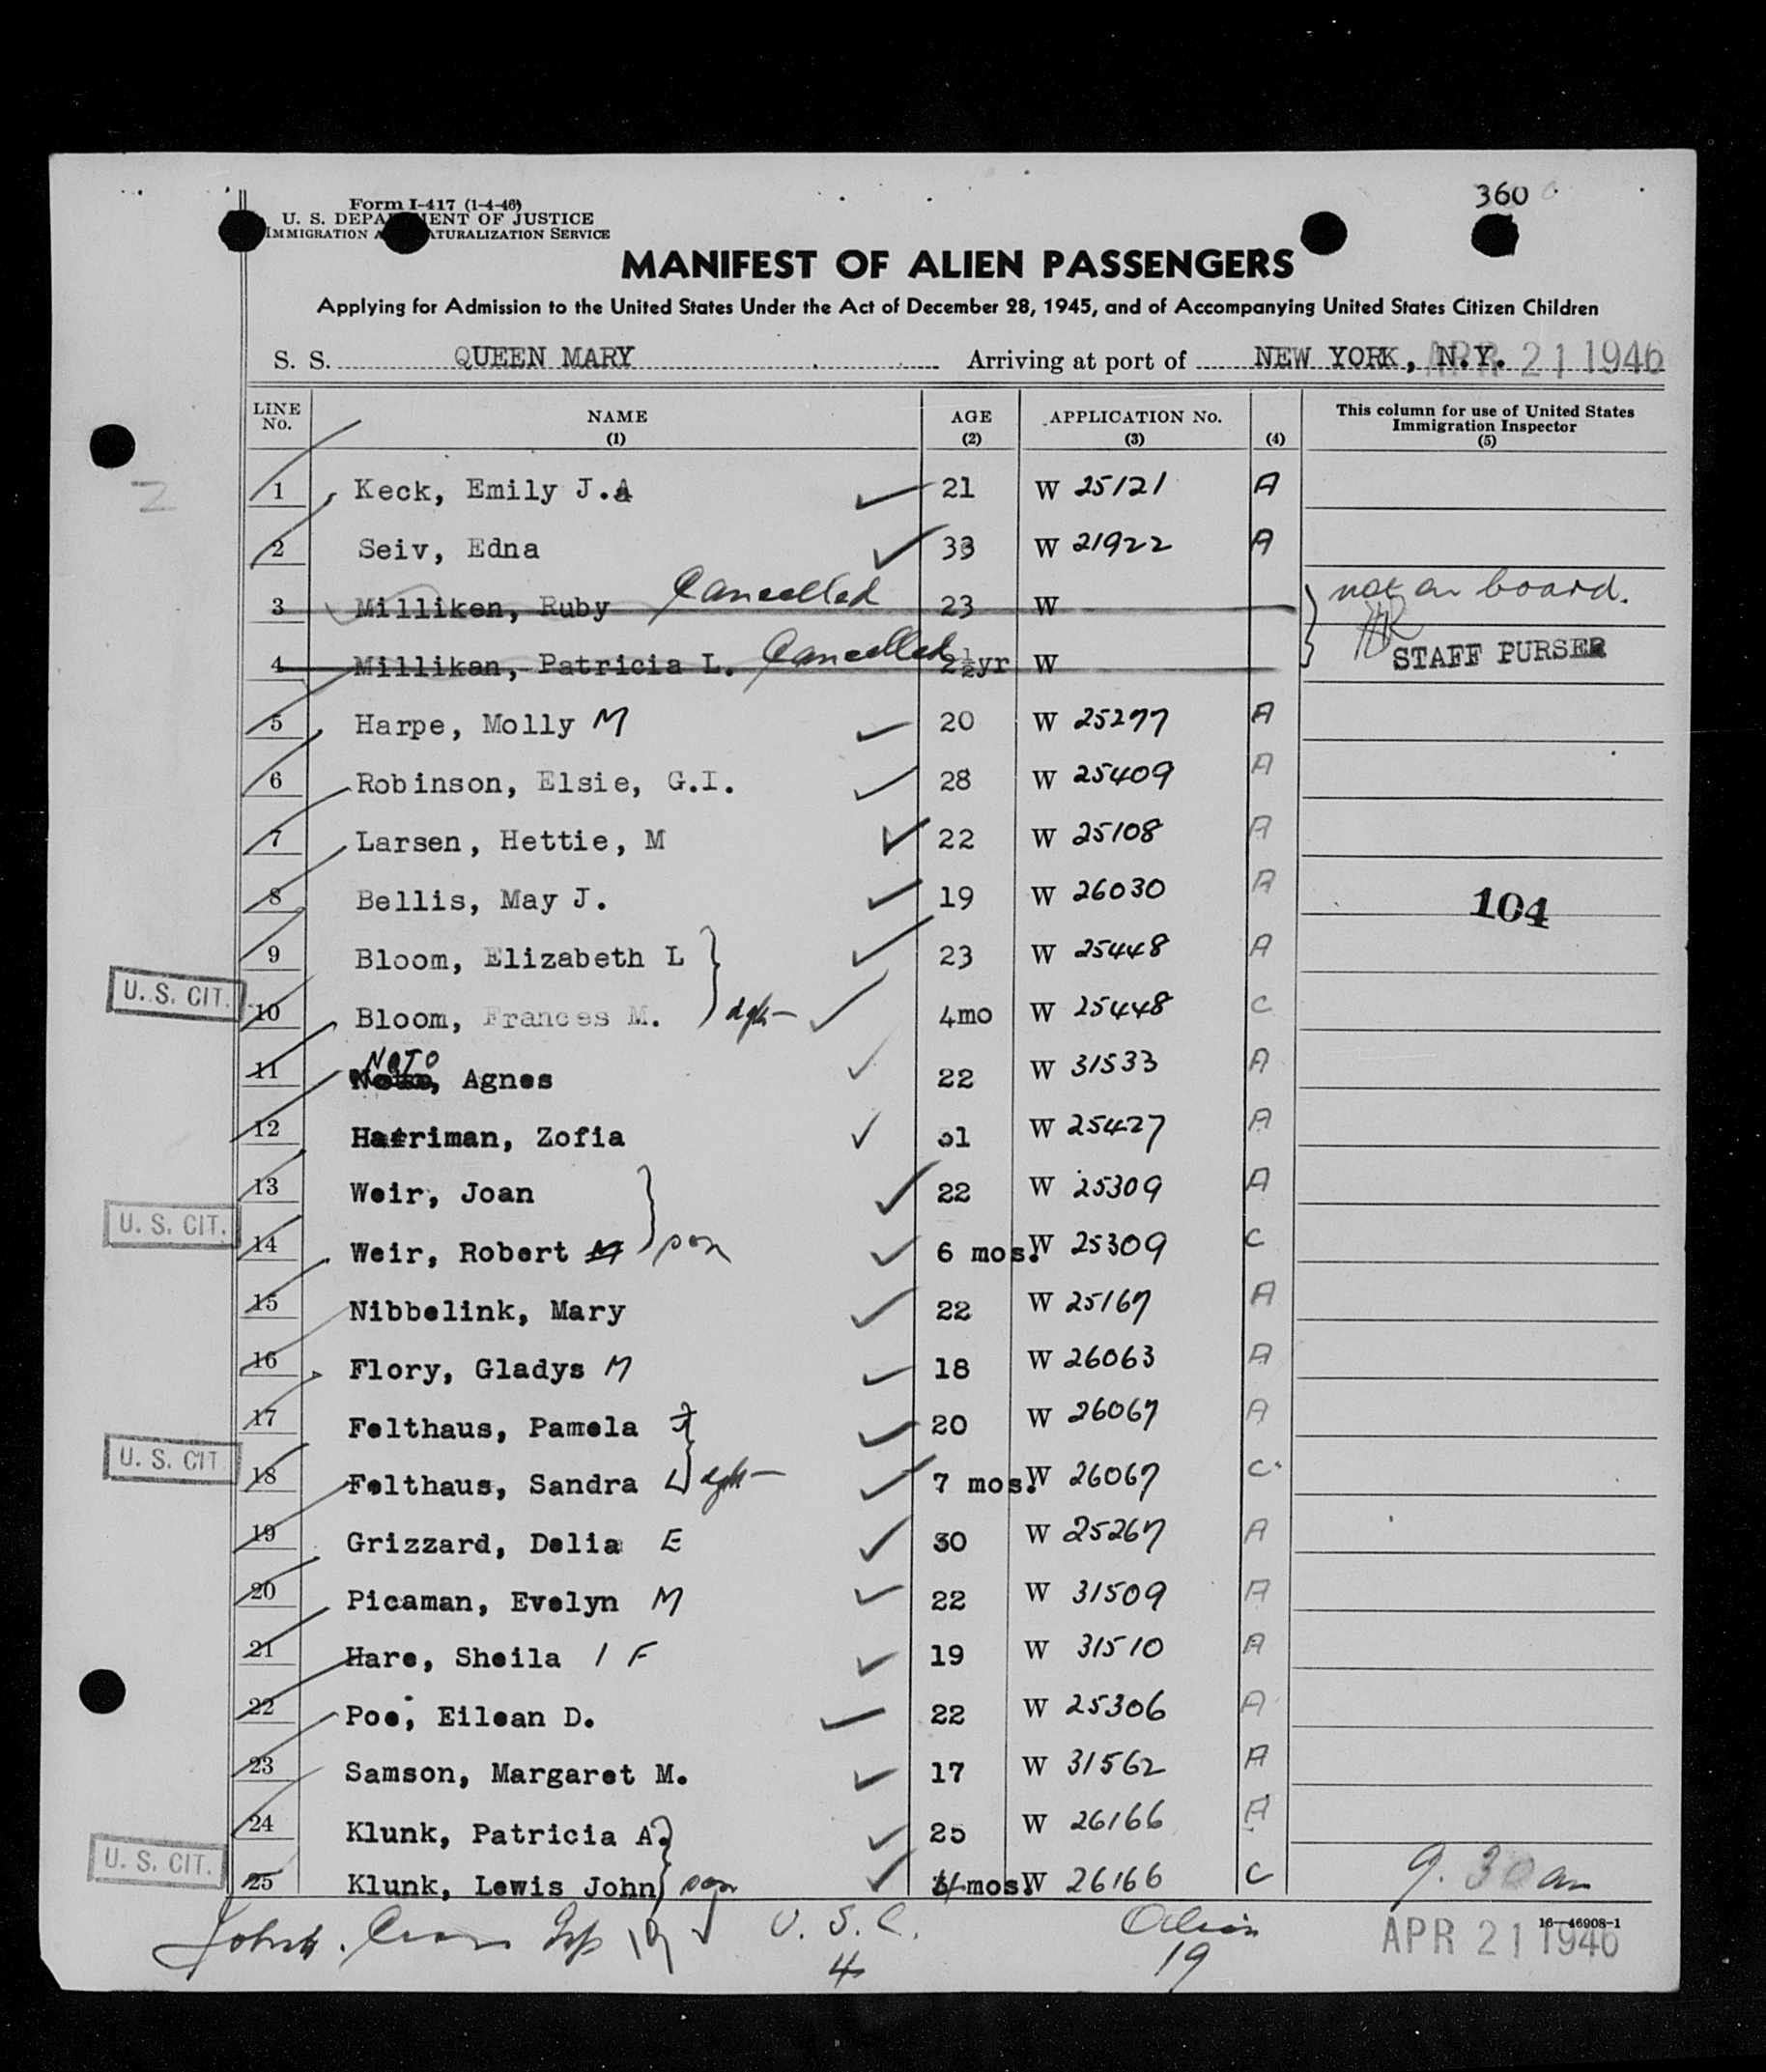 360
Form I-417 (1-4-46)
U. S. DEPARTMENT OF JUSTICE
IMMIGRATION AND NATURALIZATION SERVICE
MANIFEST OF ALIEN PASSENGERS
Applying for Admission to the United States Under the Act of December 28, 1945, and of Accompanying United States Citizen Children
S. S. QUEEN MARY Arriving at port of NEW YORK, N.Y. APR 21 1946
LINE No. NAME (1) AGE (2) APPLICATION No. (3) (4) This column for use of United States Immigration Inspector (5)
1 Keck, Emily J.A 21 W 25121 A
2 Seiv, Edna 33 W 21922 A
3 Milliken, Ruby Cancelled 23 W not on board.
4 Millikan, Patricia L. Cancelled 2½yr W STAFF PURSER
5 Harpe, Molly M 20 W 25277 A
6 Robinson, Elsie, G.I. 28 W 25409 A
7 Larsen, Hettie, M 22 W 25108 A
8 Bellis, May J. 19 W 26030 A 104
9 Bloom, Elizabeth L 23 W 25448 A
U. S. CIT. 10 Bloom, Frances M. dgh 4mo W 25448 C
11 NOTO, Agnes 22 W 31533 A
12 Harriman, Zofia 31 W 25427 A
13 Weir, Joan 22 W 25309 A
U. S. CIT. 14 Weir, Robert M son 6 mos. W 25309 C
15 Nibbelink, Mary 22 W 25167 A
16 Flory, Gladys M 18 W 26063 A
17 Felthaus, Pamela J 20 W 26067 A
U. S. CIT 18 Felthaus, Sandra L dgh 7 mos. W 26067 C
19 Grizzard, Delia E 30 W 25267 A
20 Picaman, Evelyn M 22 W 31509 A
21 Hare, Sheila I F 19 W 31510 A
22 Poe, Eilean D. 22 W 25306 A
23 Samson, Margaret M. 17 W 31562 A
24 Klunk, Patricia A. 25 W 26166 A
U. S. CIT. 25 Klunk, Lewis John son 4 mos. W 26166 C 9.30 am
U. S. C. Alien
4 19
16-46908-1
APR 21 1946